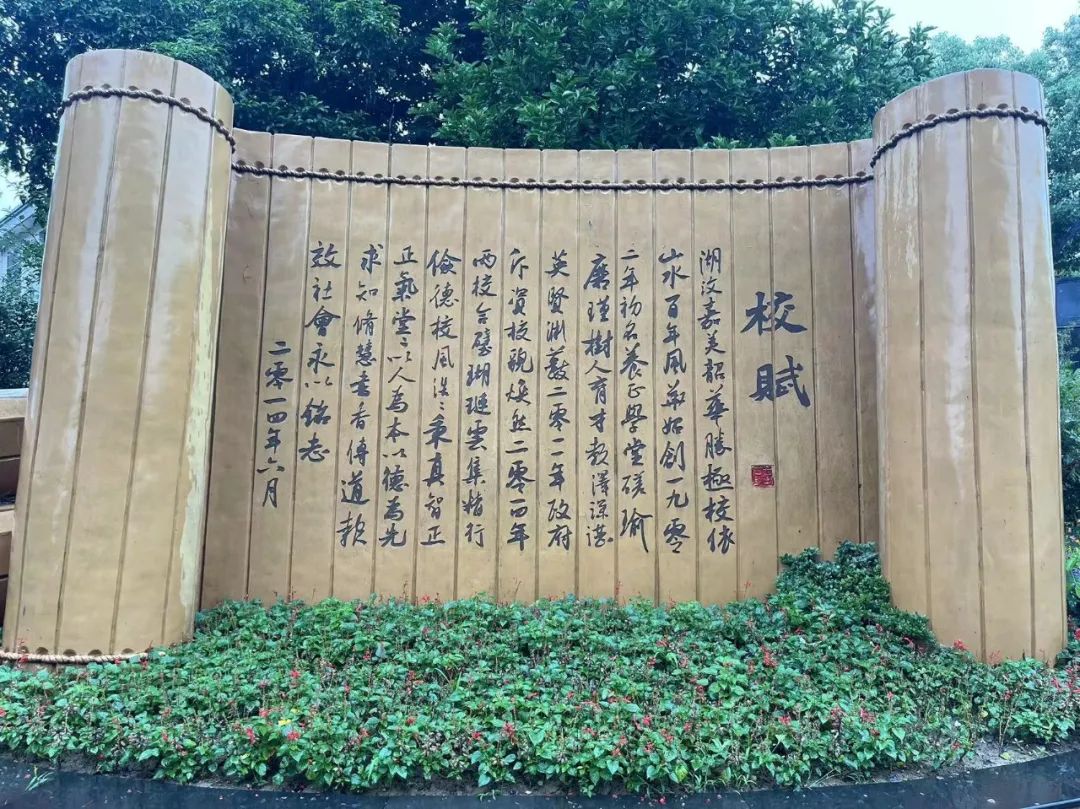 校賦
湖嘉美韶華勝極校依
山水百年風華始創一九零
二年初名養正學堂磋瑜
磨瑾樹人育才教澤深湛
英賢淵藪二零一一年政府
斥資校貌煥然二零一四年
两校合璧瑚璉雲集行
儉德校風秉真智正
正氣堂々以人為本以德為先
求知脩慧書香傳道
效社會永以銘志
二零一四年六月